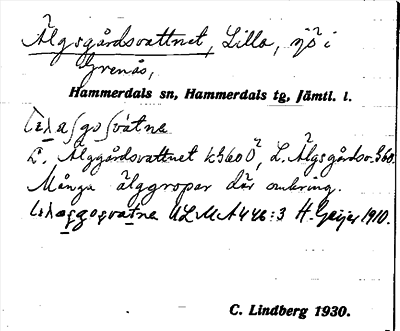 Älgsgårdsvattnet, Lilla, sjö i
Grenås,
Hammerdals sn, Hammerdals tg, Jämtl. l.
L. Älggårdsvattnet k360Ö, L. Älgsgårdsv. 360.
Många älggropar där omkring.
ULMA 446:3 H. Geijer 1910.
C. Lindberg 1930.